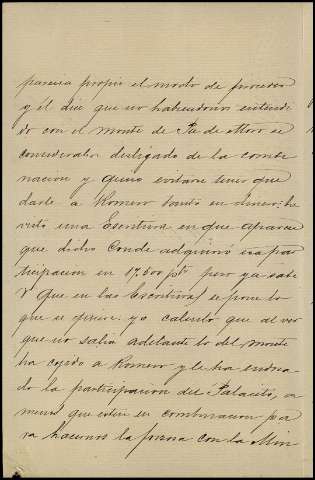 parecia propio el modo de proceder
y él dice que no habiendonos entendi
do con el monte de Pta de Moro se
consideraba desligado de la combi
nacion y quiso evitarse tener que
darle a Romero tambien dinero; he
visto una Escritura en que aparece
que dicho Conde adquirió esa par
ticipacion en 17.500 pts pero ya sabe
V que en las Escrituras se pone lo
que se quiere. yo calculo que al ver
que no salia adelante lo del monte
ha cojido a Romero y le ha endosa
do la participacion del Palacito, a
menos que esten en combinacion pa
ra hacernos la forzosa con la Min